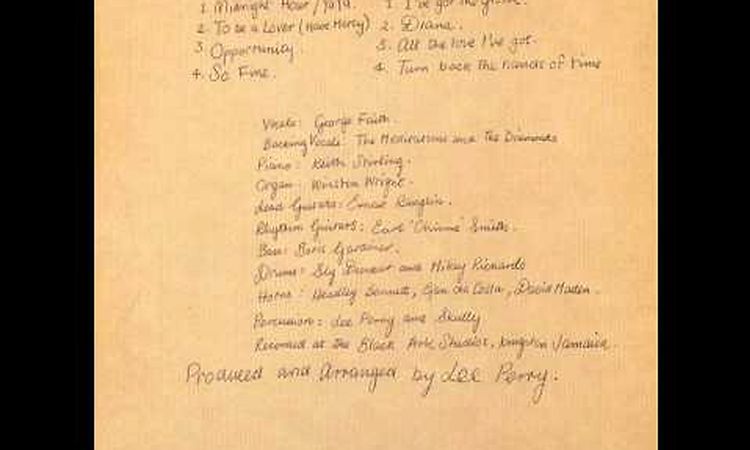 1. Midnight Hour / Ya Ya. 1. I've got the groove.
2. To be a Lover (Have Mercy) 2. Diana.
3 Opportunity. 3. All the love I've got.
4. So Fine. 4. Turn back the hands of time
Vocals: George Faith.
Backing Vocals: The Meditations and The Diamonds
Piano: Keith Sterling.
Organ: Winston Wright.
Lead Guitars: Ernest Ranglin.
Rhythm Guitars: Earl 'Chinna' Smith.
Bass: Boris Gardiner.
Drums: Sly Dunbar and Mikey Richards
Horns: Headley Bennett, Glen da Costa, David Madden.
Percussion: Lee Perry and Skully
Recorded at the Black Ark Studios, Kingston Jamaica.
Produced and Arranged by Lee Perry.